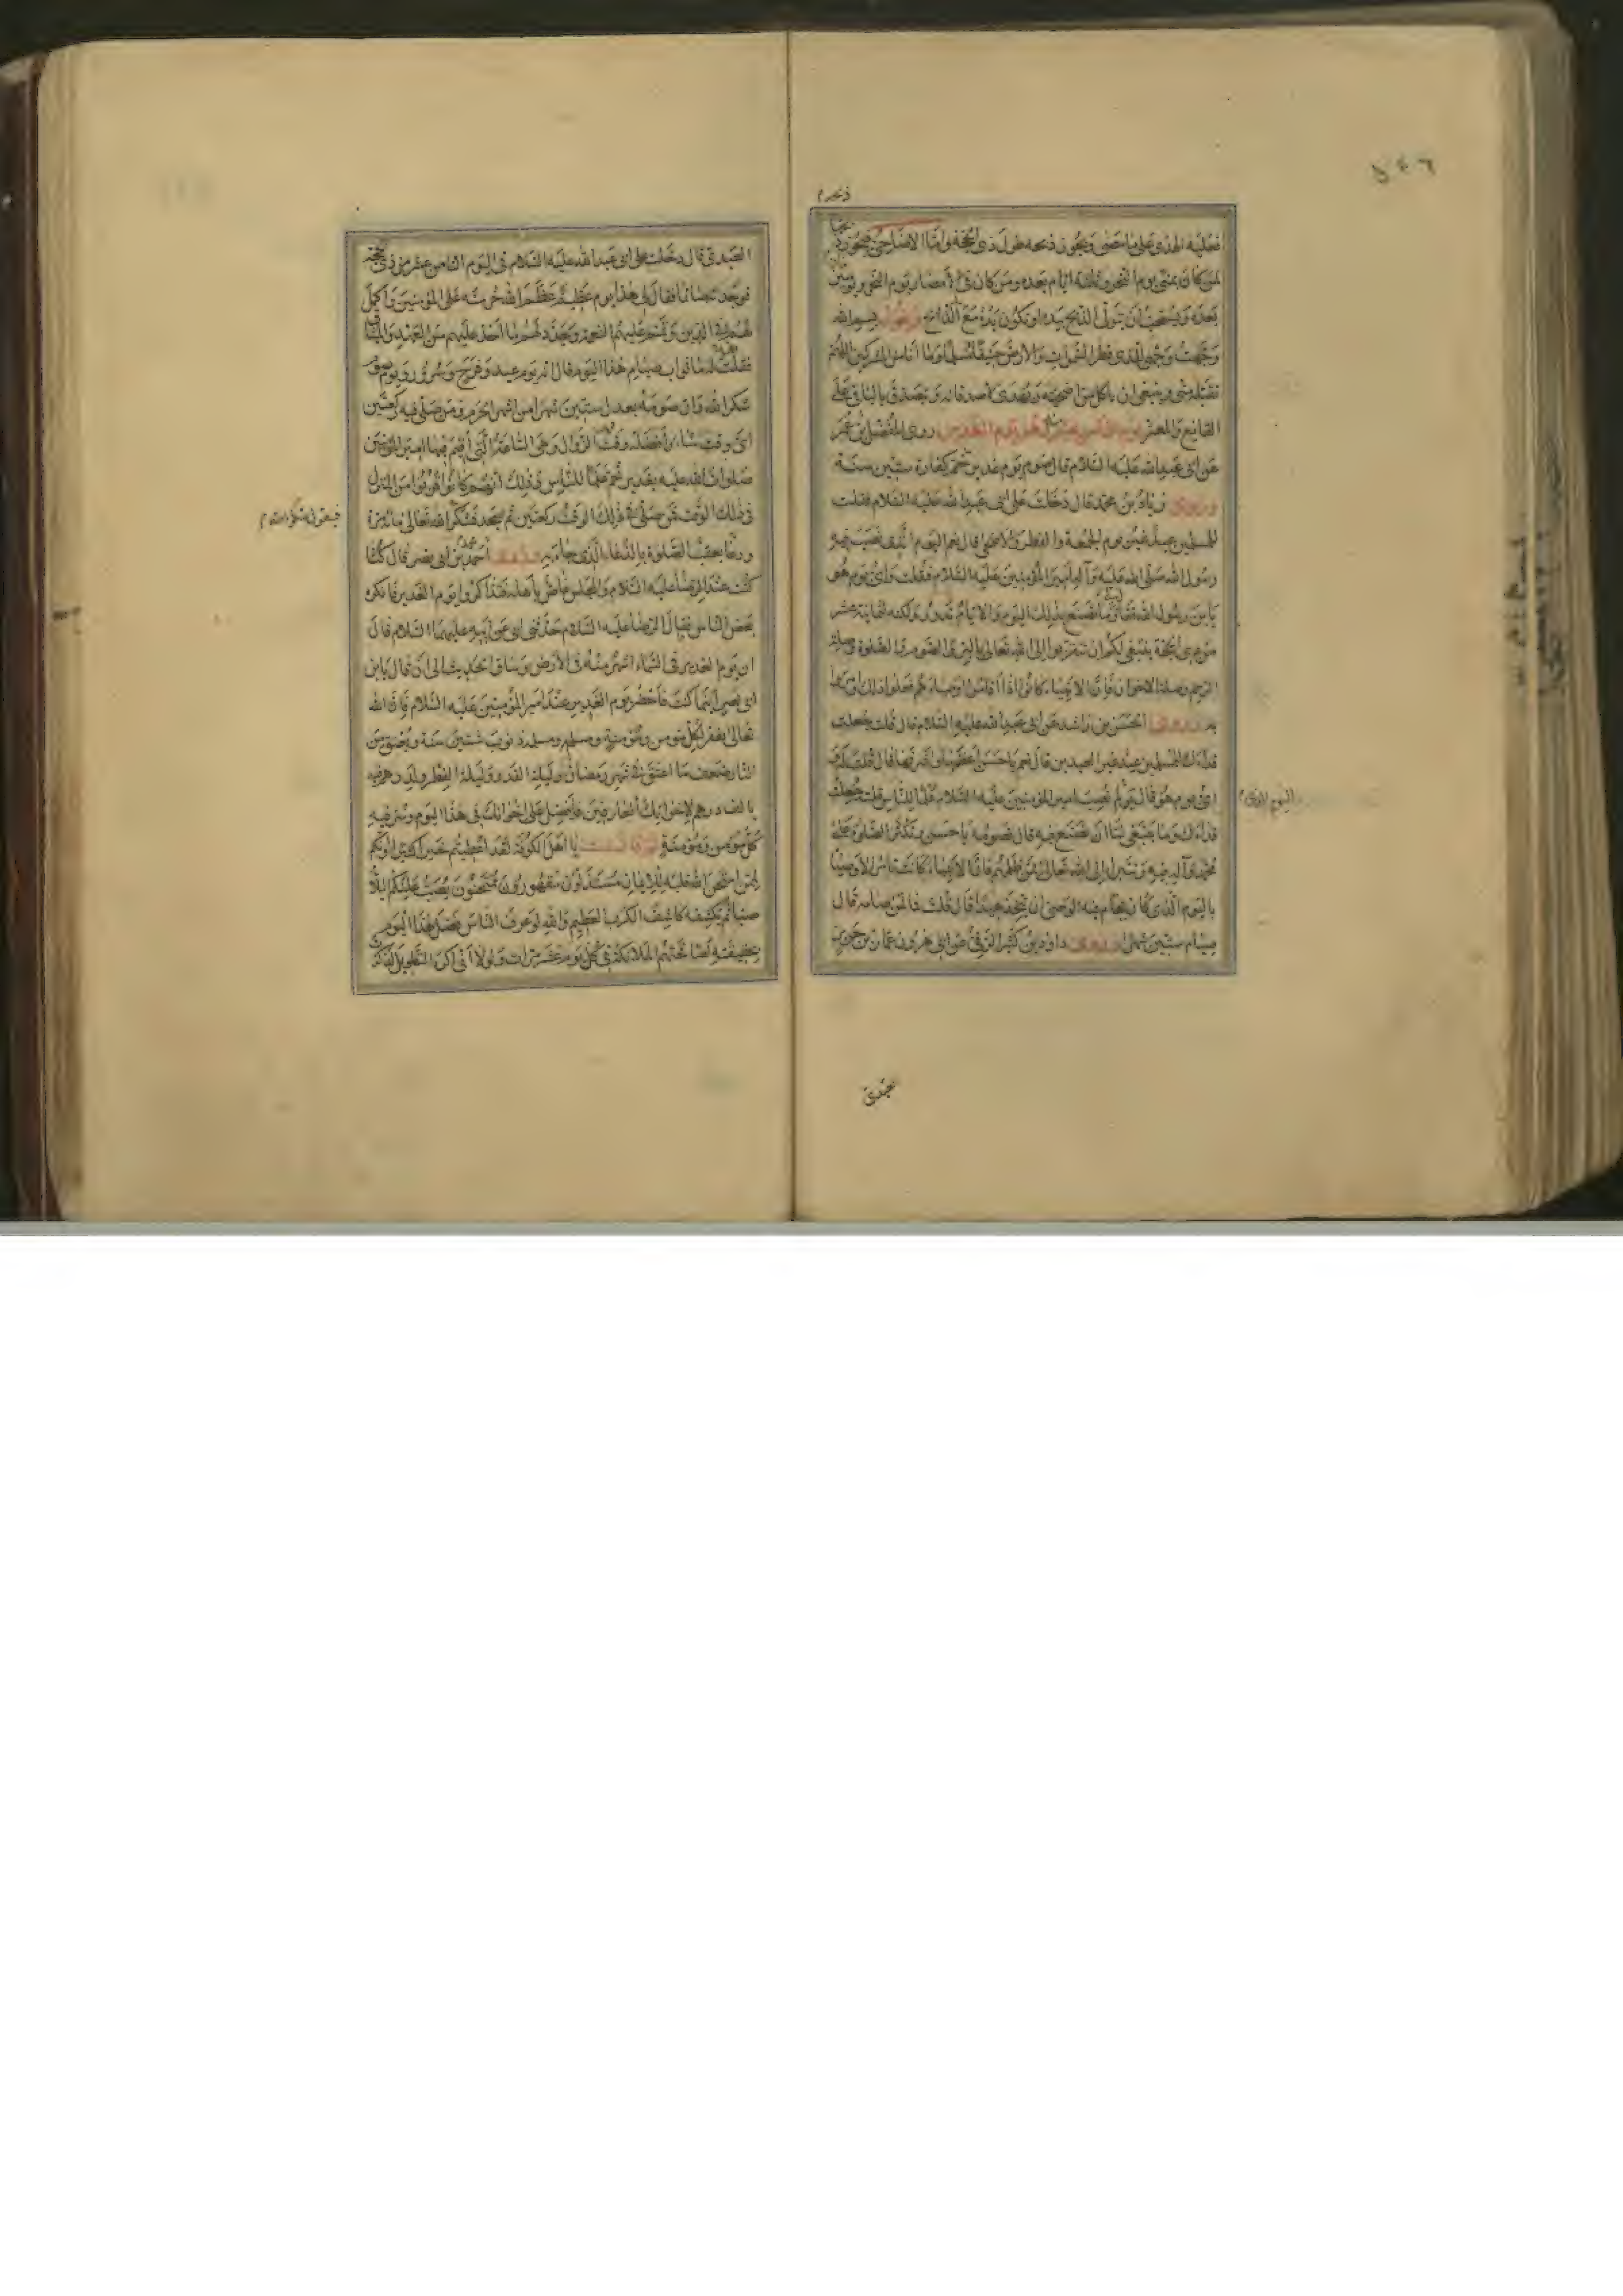 ٥٤٦
فعليه الهدى على ما مضى ويجوز ذبحه طول ذى الحجة واما الاضاحى فيجوز ذبحها
لمن كان بمنى يوم النحر وثلثة ايام بعده ومن كان فى الامصار يوم النحر ويومين
بعده ويستحب ان يتولى الذبح بيده او تكون يده مع يد الذابح ويقول بسم الله
وجهت وجهى للذى فطر السموات والارض حنيفا مسلما وما انا من المشركين اللهم
تقبله منى وينبغى ان ياكل من اضحيته ويهدى لاصدقائه ويتصدق بالباقى على
القانع والمعتر يوم الغدير روى المفضل بن عمر
عن ابى عبد الله عليه السلام قال صوم يوم غدير خم كفارة ستين سنة
وروى زياد بن محمد قال دخلت على ابى عبد الله عليه السلام فقلت
للمسلمين عيد غير يوم الجمعة والفطر والاضحى قال نعم اليوم الذى نصب فيه
رسول الله صلى الله عليه وآله امير المؤمنين عليه السلام فقلت واى يوم هو
يابن رسول الله فقال وما تصنع بذلك اليوم والايام تدور ولكنه لثمانية عشر
من ذى الحجة ينبغى لكم ان تتقربوا الى الله تعالى بالبر والصوم والصلوة وصلة
الرحم وصلة الاخوان فان الانبياء كانوا اذا اقاموا اوصياءهم فعلوا ذلك وامروا
به وروى الحسن بن راشد عن ابى عبد الله عليه السلام قال قلت جعلت
فداك للمسلمين عيد غير العيدين قال نعم يا حسن اعظمهما واشرفهما قال قلت له
اى يوم هو قال يوم نصب امير المؤمنين عليه السلام علما للناس قلت جعلت
فداك وما ينبغى لنا ان نصنع فيه قال تصومه يا حسن وتكثر الصلوة على
محمد وآله فيه وتتبرأ الى الله تعالى ممن ظلمهم فان الانبياء كانت تامر الاوصياء
باليوم الذى كان يقام فيه الوصى ان يتخذ عيدا قال قلت فما لمن صامه قال
صيام ستين شهرا وروى داود بن كثير الرقى عن ابى هرون عمار بن حريز
العبدى
العبدى قال دخلت على ابى عبد الله عليه السلام فى اليوم الثامن عشر من ذى الحجة
فوجدته صائما فقال لى هذا يوم عظيم عظم الله حرمته على المؤمنين واكمل
لهم فيه الدين وتمم عليهم النعمة وجدد لهم ما اخذ عليهم من العهد والميثاق
فقلت له ما ثواب صيام هذا اليوم قال انه يوم عيد وفرح وسرور ويوم صوم
شكرا لله وان صومه يعدل ستين شهرا من اشهر الحرم ومن صلى فيه ركعتين
اى وقت شاء وافضله وقت الزوال وهى الساعة التى اقيم فيها امير المؤمنين
صلوات الله عليه بغدير خم علما للناس وذلك انهم كانوا قربوا من المنزل
فى ذلك الوقت فمن صلى فى ذلك الوقت ركعتين ثم يسجد فشكر الله تعالى مائة مرة
فيقول شكرا لله
ودعا بعقب الصلوة بالدعاء الذى جاء به وروى احمد بن محمد بن ابى نصر قال كنا
كنت عند الرضا عليه السلام والمجلس غاص باهله فتذاكروا يوم الغدير فانكره
بعض الناس فقال الرضا عليه السلام حدثنى ابى عن ابيه عليهما السلام قال
ان يوم الغدير فى السماء اشهر منه فى الارض وساق الحديث الى ان قال يابن
ابى نصر اينما كنت فاحضر يوم الغدير عند امير المؤمنين عليه السلام فان الله
تعالى يغفر لكل مومن ومومنة ومسلم ومسلمة ذنوب ستين سنة ويعتق من
النار ضعف ما اعتق فى شهر رمضان وليلة القدر وليلة الفطر ولدرهم فيه
بالف درهم لاخوانك العارفين فافضل على اخوانك فى هذا اليوم وسر فيه
كل مومن ومومنة ثم قال يا اهل الكوفة لقد اعطيتم خيرا كثيرا وانكم
لممن امتحن الله قلبه للايمان مستذلون مقهورون ممتحنون يصب عليكم البلاء
صبا ثم يكشفه كاشف الكرب العظيم والله لو عرف الناس فضل هذا اليوم
بحقيقته لصافحتهم الملائكة فى كل يوم عشر مرات ولولا انى اكره التطويل لذكرت